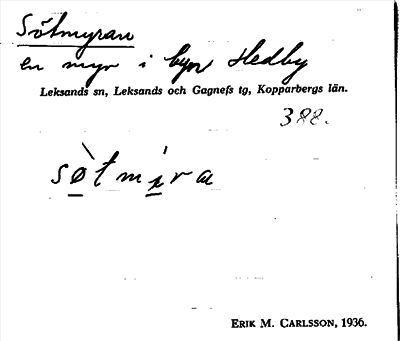 Sötmyran
en myr i byn Hedby
Leksands sn, Leksands och Gagnefs tg, Kopparbergs län.
388.
sø̀tmi̱ra
ERIK M. CARLSSON, 1936.